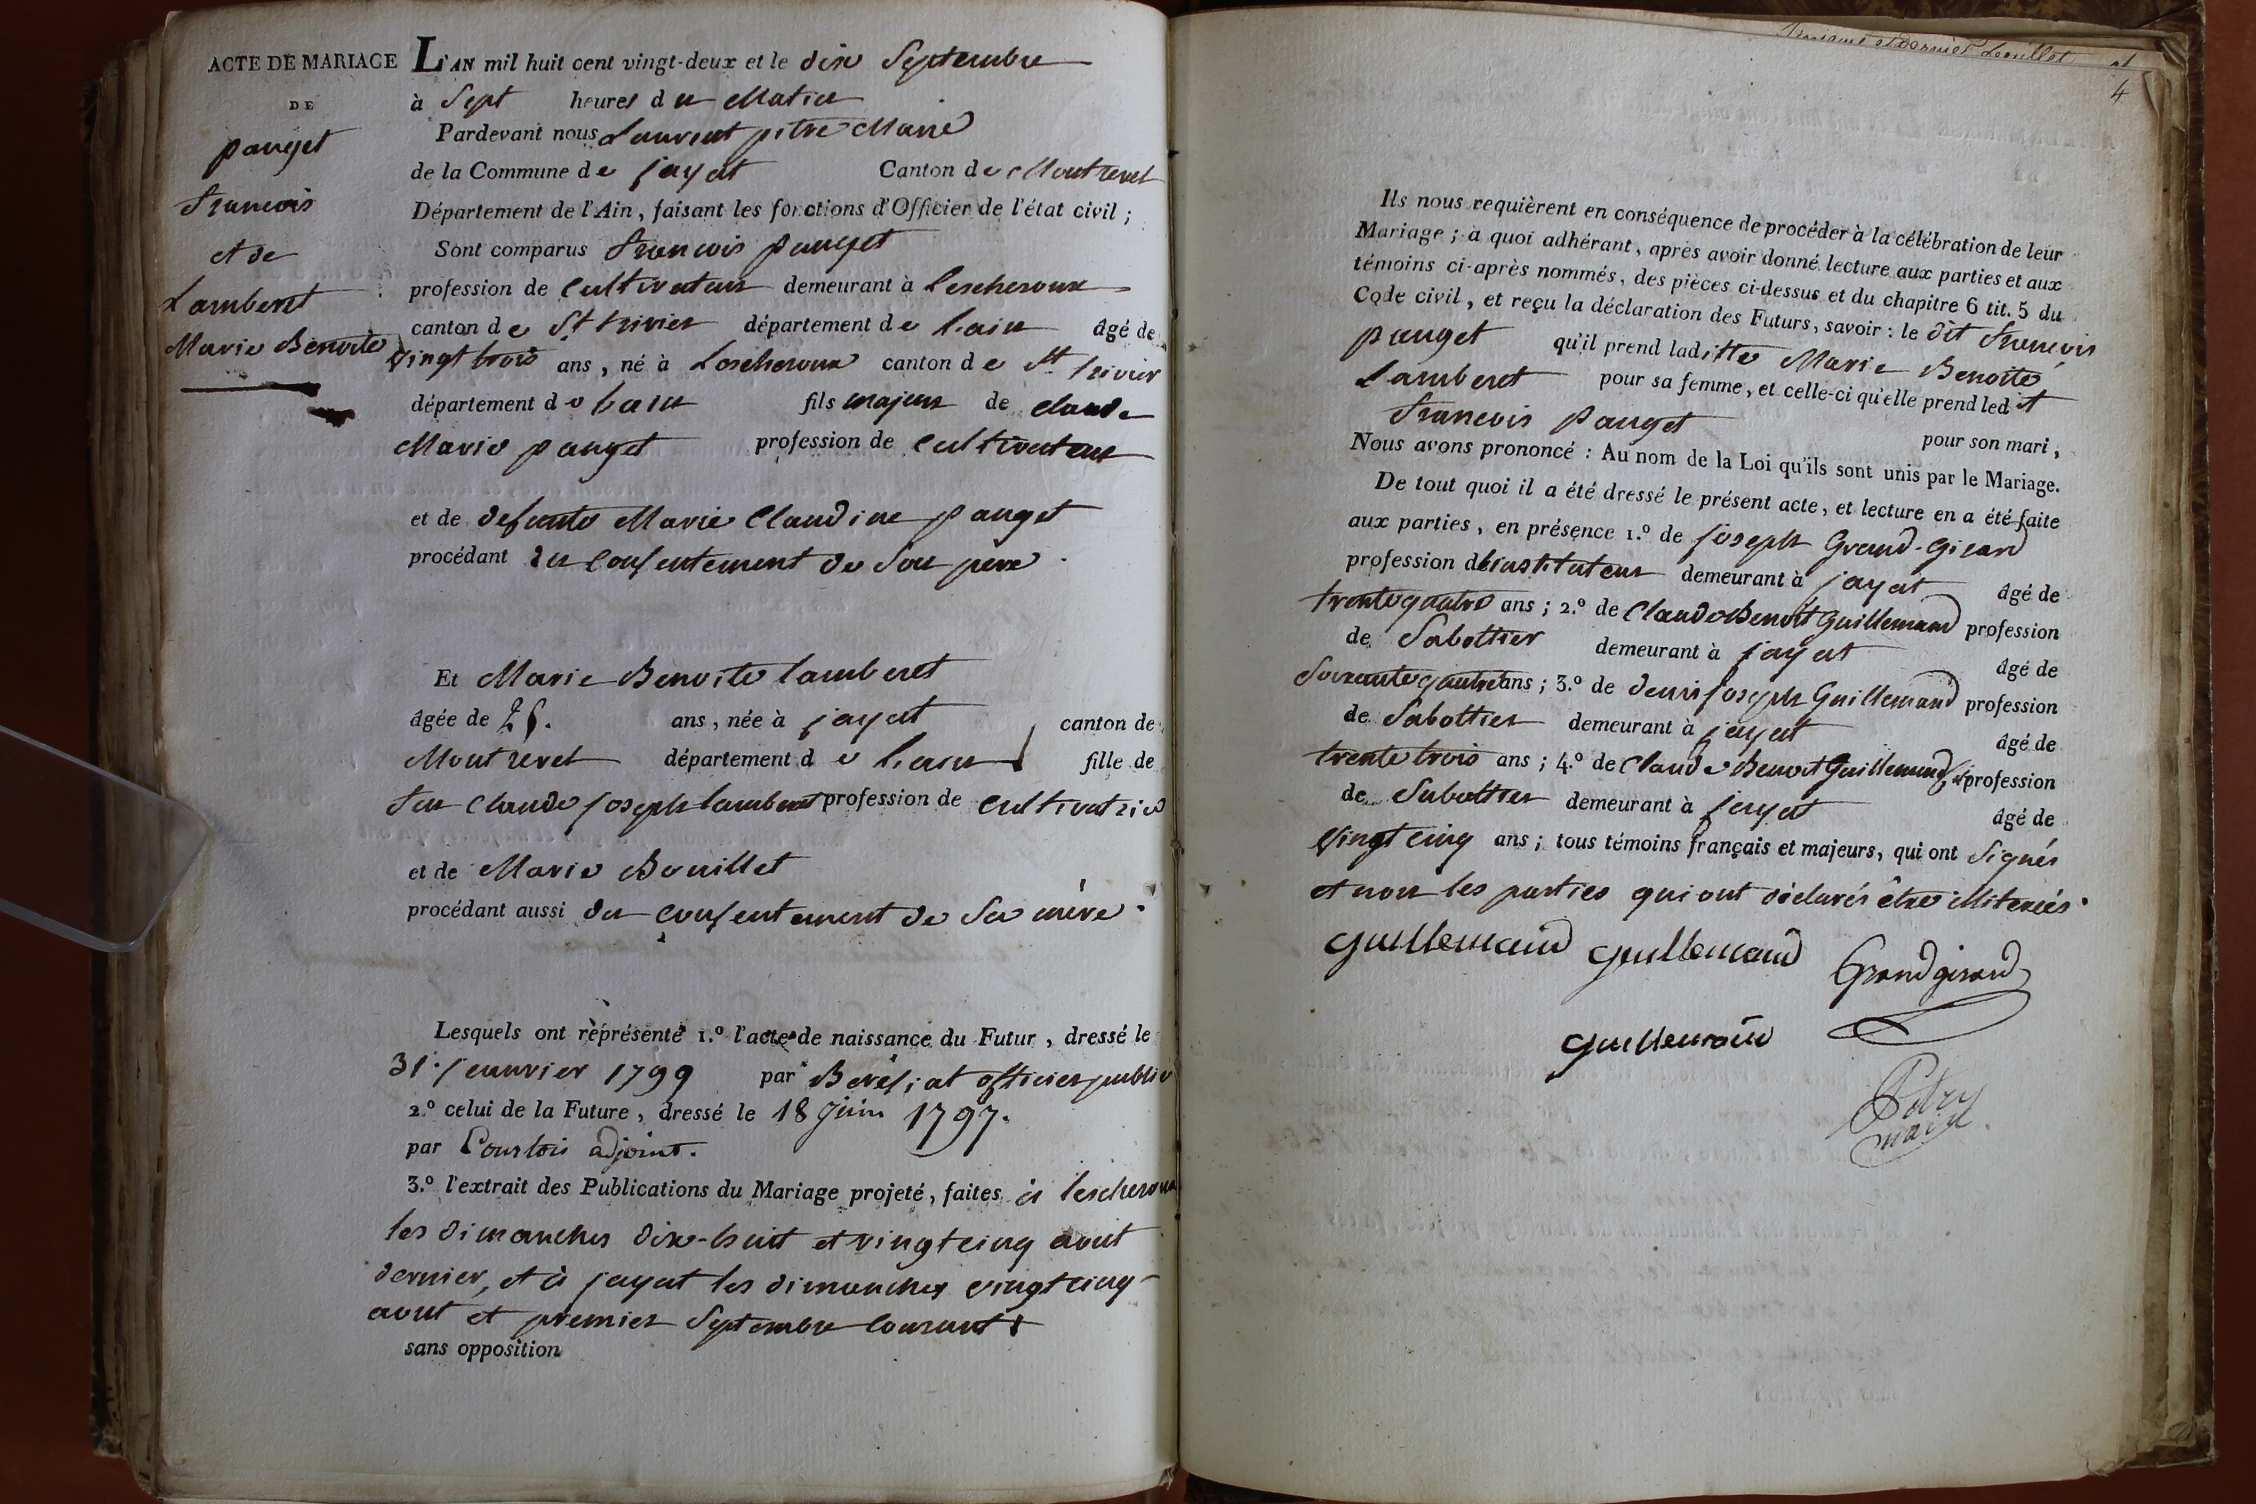 ACTE DE MARIAGE
DE
pauget
francois
et de
Lamberet
Marie Benoite
L'AN mil huit cent vingt-deux et le dix Septembre
à Sept heures du Matin
Pardevant nous Laurent pitre Maire
de la Commune de jayat Canton de Montrevel
Département de l'Ain, faisant les fonctions d'Officier de l'état civil ;
Sont comparus francois pauget
profession de Cultivateur demeurant à Lescheroux
canton de St trivier département de lain âgé de
vingt trois ans, né à Lescheroux canton de St trivier
département de lain fils majeur de claude
Marie pauget profession de Cultivateur
et de defunte Marie Claudine pauget
procédant du Consentement de son père
Et Marie Benoite lamberet
âgée de 25. ans, née à jayat canton de
Montrevel département de lain fille de
feu Claude joseph lamberet profession de Cultivatrice
et de Marie Bouillet
procédant aussi du consentement de sa mère
Lesquels ont réprésenté 1.º l'acte de naissance du Futur, dressé le
31. janvier 1799 par Beréziat officier public
2.º celui de la Future, dressé le 18 juin 1797.
par Courtois adjoint.
3.º l'extrait des Publications du Mariage projeté, faites à lescheroux
les dimanches dix-huit et vingt cinq aout
dernier, et à jayat les dimanches vingt cinq
aout et premier Septembre Courant
sans opposition
troisieme et dernier feuillet
4
Ils nous requièrent en conséquence de procéder à la célébration de leur
Mariage ; à quoi adhérant, après avoir donné lecture aux parties et aux
témoins ci-après nommés, des pièces ci-dessus et du chapitre 6 tit. 5 du
Code civil, et reçu la déclaration des Futurs, savoir : le dit francois
pauget qu'il prend laditte Marie Benoite
Lamberet pour sa femme, et celle-ci qu'elle prend ledit
francois pauget pour son mari,
Nous avons prononcé : Au nom de la Loi qu'ils sont unis par le Mariage.
De tout quoi il a été dressé le présent acte, et lecture en a été faite
aux parties, en présence 1.º de joseph Grand-Girard
profession d'instituteur demeurant à jayat âgé de
trente quatre ans ; 2.º de Claude Benoit Guillemaud profession
de Sabottier demeurant à jayat âgé de
Soixante quatre ans ; 3.º de denis joseph Guillemaud profession
de Sabottier demeurant à jayat âgé de
trente trois ans ; 4.º de Claude Benoit Guillemaud profession
de Sabottier demeurant à jayat âgé de
vingt cinq ans ; tous témoins français et majeurs, qui ont Signés
et non les parties qui ont déclarés être illiterées.
guillemaud guillemaud Grandgirard
guillemaud
Pitre
maire